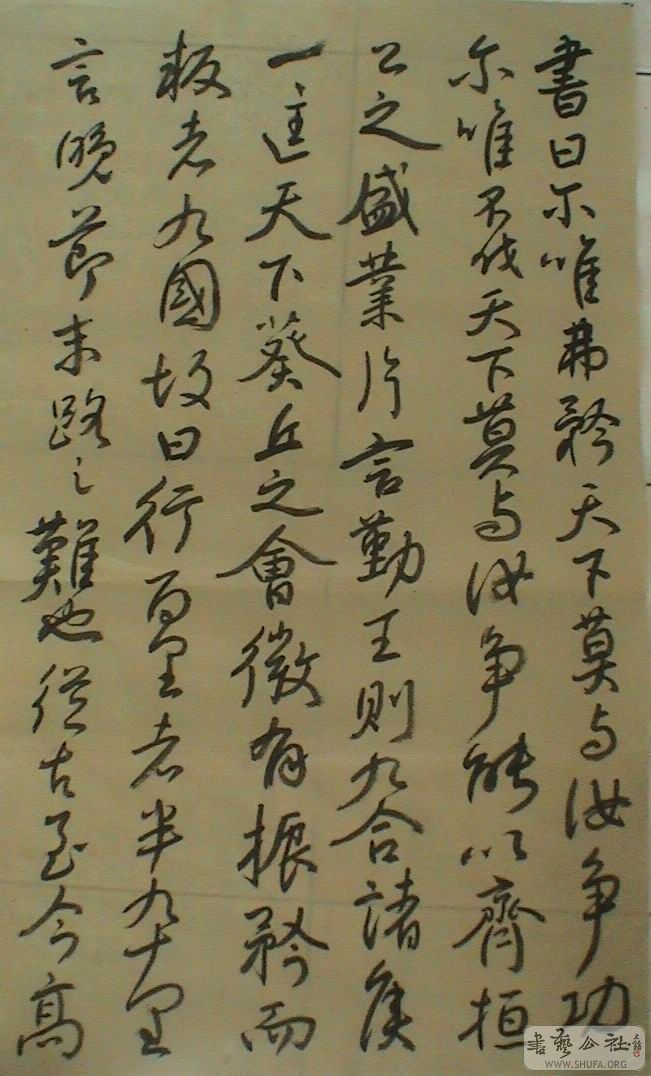 書曰尓唯弗矜天下莫与汝争功
尓唯不伐天下莫与汝争能以齊桓
公之盛業片言勤王則九合諸侯
一匡天下葵丘之會微有振矜而
叛者九國故曰行百里者半九十里
言晚節末路之難也從古至今高
書藝公社
WWW.SHUFA.ORG